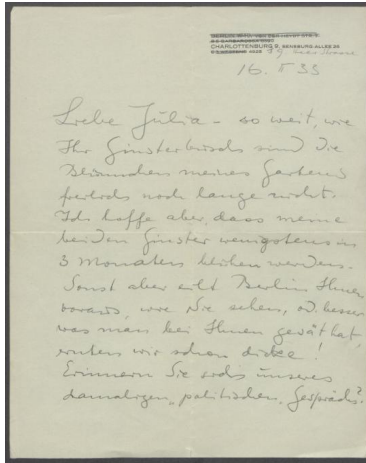 CHARLOTTENBURG 9, SENSBURG-ALLEE 28
16. 5 33
Liebe Julia - so weit, wie
Ihr Ginsterbusch sind die
Blümchen meines Gartens
freilich noch lange nicht.
Ich hoffe aber, dass meine
beiden Ginster wenigstens in
3 Monaten blühen werden.
Sonst aber eilt Berlin Ihnen
voraus, wie Sie sehen, od. besser
was man bei Ihnen gesät hat,
ernten wir schon dicke!
Erinnern Sie sich unseres
damaligen „politischen" Gesprächs?